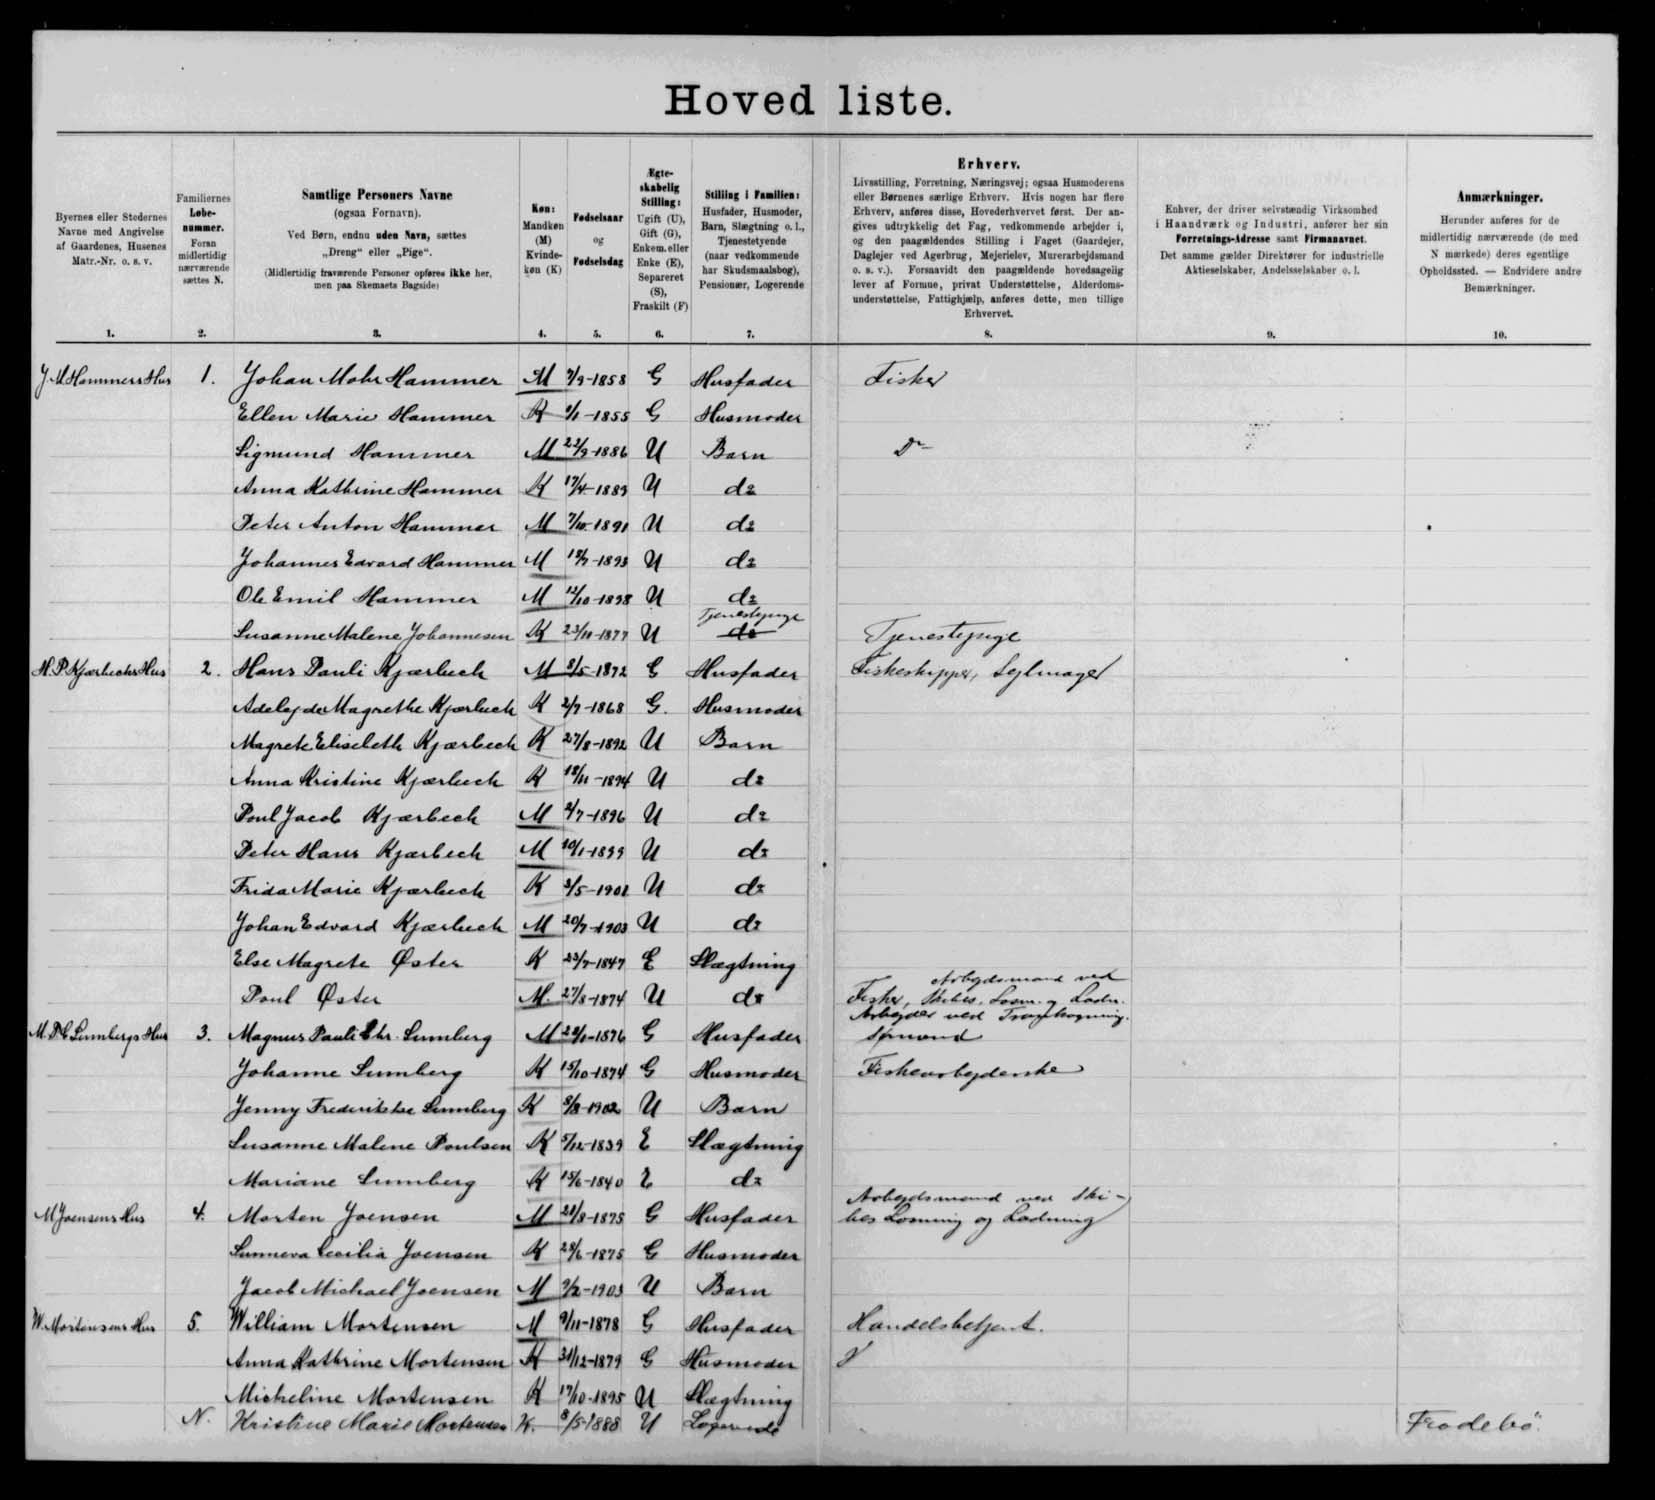 Hoved liste.
Byernes eller Stedernes
Navne med Angivelse
af Gaardenes, Husenes
Matr.-Nr. o. s. v.
1.
Familiernes
Løbe-
nummer.
Foran
midlertidig
nærværende
sættes N.
2.
Samtlige Personers Navne
(ogsaa Fornavn).
Ved Børn, endnu uden Navn, sættes
„Dreng“ eller „Pige“.
(Midlertidig fraværende Personer opføres ikke her,
men paa Skemaets Bagside)
3.
Køn:
Mandkøn
(M)
Kvinde-
køn (K)
4.
Fødselsaar
og
Fødselsdag
5.
Ægte-
skabelig
Stilling:
Ugift (U),
Gift (G),
Enkem. eller
Enke (E),
Separeret
(S),
Fraskilt (F)
6.
Stilling i Familien:
Husfader, Husmoder,
Barn, Slægtning o. l.,
Tjenestetyende
(naar vedkommende
har Skudsmaalsbog),
Pensionær, Logerende
7.
Erhverv.
Livsstilling, Forretning, Næringsvej; ogsaa Husmoderens
eller Børnenes særlige Erhverv. Hvis nogen har flere
Erhverv, anføres disse, Hovederhvervet først. Der an-
gives udtrykkelig det Fag, vedkommende arbejder i,
og den paagældendes Stilling i Faget (Gaardejer,
Daglejer ved Agerbrug, Mejerielev, Murerarbejdsmand
o. s. v.). Forsaavidt den paagældende hovedsagelig
lever af Formue, privat Understøttelse, Alderdoms-
understøttelse, Fattighjælp, anføres dette, men tillige
Erhvervet.
8.
Enhver, der driver selvstændig Virksomhed
i Haandværk og Industri, anfører her sin
Forretnings-Adresse samt Firmanavnet.
Det samme gælder Direktører for industrielle
Aktieselskaber, Andelsselskaber o. l.
9.
Anmærkninger.
Herunder anføres for de
midlertidig nærværende (de med
N mærkede) deres egentlige
Opholdssted. — Endvidere andre
Bemærkninger.
10.
J M Hammers Hus 1. Johan Mohr Hammer M 7/9-1858 G Husfader Fisker
Ellen Marie Hammer K /1-1855 G Husmoder
Sigmund Hammer M 22/9-1886 U Barn Do
Anna Kathrine Hammer K 17/4-1889 U do
Peter Anton Hammer M 7/10-1891 U do
Johannes Edvard Hammer M 18/7-1893 U do
Ole Emil Hammer M 12/10-1898 U do
Tjenestepige
Susanne Malene Johannesen K 23/11-1877 U do Tjenestepige
H. P. Kjærbechs Hus 2. Hans Pauli Kjærbech M 8/5-1872 G Husfader Fiskeskipper, Sejlmager
Adelejde Magrethe Kjærbech K 2/7-1868 G. Husmoder
Magrete Elisebeth Kjærbech K 27/8-1892 U Barn
Anna Kristine Kjærbech K 18/11-1894 U do
Poul Jacob Kjærbech M 2/7-1896 U do
Peter Hans Kjærbech M 10/1-1899 U do
Frida Marie Kjærbech K 3/5-1901 U do
Johan Edvard Kjærbech M 20/7-1903 U do
Else Magrete Øster K 23/7-1847 E Slægtning
Arbejdsmand ved
Poul Øster M. 27/8-1874 U do Fisker, Skibes. Losn. og Ladn.
Arbejder ved Trankogning.
M. P. C Sumbergs Hus 3. Magnus Pauli Chr. Sumberg M 22/1-1876 G Husfader Sømand
Johanne Sumberg K 15/10-1874 G Husmoder Fiskearbejderske
Jenny Frederikke Sumberg K 8/8-1902 U Barn
Susanne Malene Poulsen K 5/12-1839 E Slægtning
Mariane Sumberg K 15/6-1840 E do
Arbejdsmand ved Ski-
M Joensens Hus 4. Morten Joensen M 21/8-1875 G Husfader bes Losning og Ladning
Sunneva Cecilia Joensen K 28/6-1875 G Husmoder
Jacob Michael Joensen M 9/2-1903 U Barn
W. Mortensens Hus 5. William Mortensen M 9/11-1878 G Husfader Handelsbetjent.
Anna Kathrine Mortensen K 31/12-1879 G Husmoder
Micheline Mortensen K 17/10-1895 U Slægtning
N. Kristine Marie Mortensen K. 8/5-1888 U Logerende Frodebö.